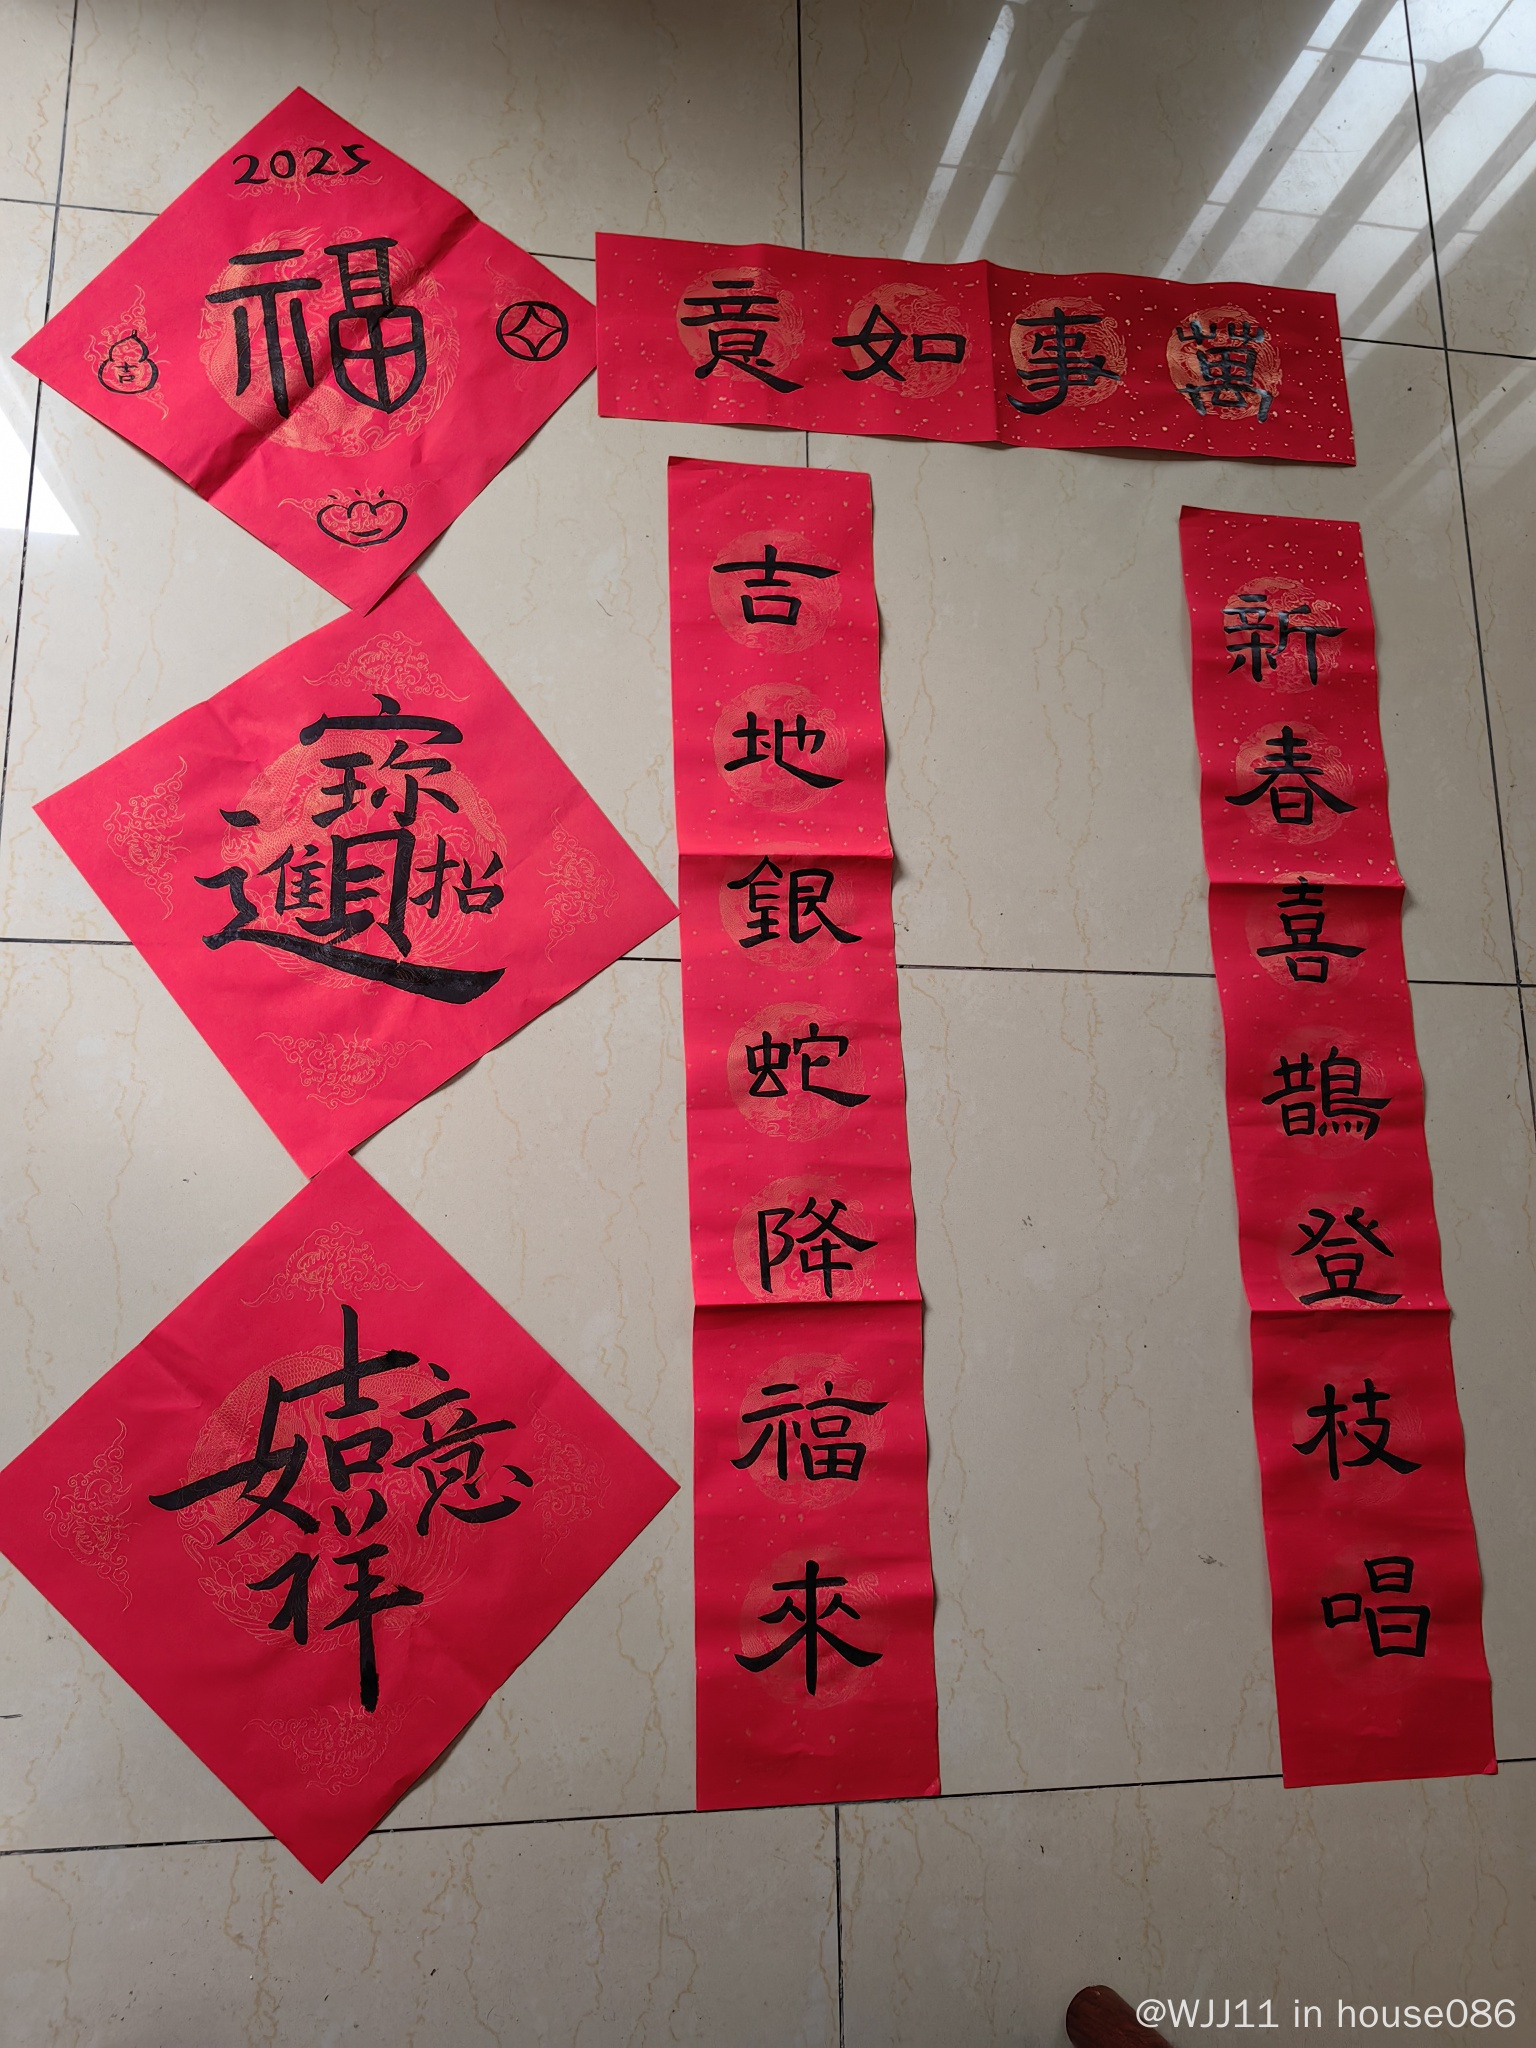 2025
福
吉
招財進寶
吉祥如意
萬事如意
新春喜鵲登枝唱
吉地銀蛇降福來
@WJJ11 in house086